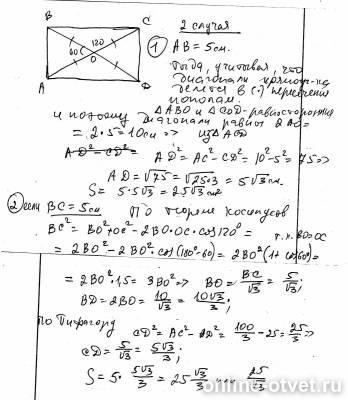 B C
60 120
O
A D
2 случая
1 AB = 5см.
Тогда, учитывая, что
диагонали
делятся в (·) пересечения
пополам.
ΔABO и ΔCOD - равносторонние
и поэтому диагонали равны 2AO =
= 2·5 = 10см => из ΔACD
AD² - CD² = AD² = AC² - CD² = 10² - 5² = 75 =>
AD = √75 = √25·3 = 5√3 см.
S = 5·5√3 = 25√3 см
2 если BC = 5см По теореме косинусов
BC² = BO² + OC² - 2BO·OC·cos120° = т.к. BO=OC
= 2BO² - 2BO²·cos(180°-60) = 2BO²(1+cos60°) =
= 2BO²·1,5 = 3BO² => BO = BC/√3 = 5/√3;
BD = 2BO = 10/√3 = 10√3/3;
по Пифагору CD² = AC² - AD² = 100/3 - 25 = 25/3 =>
CD = 5/√3 = 5√3/3;
S = 5· 5√3/3 = 25 √3/3 25/√3
online-otvet.ru